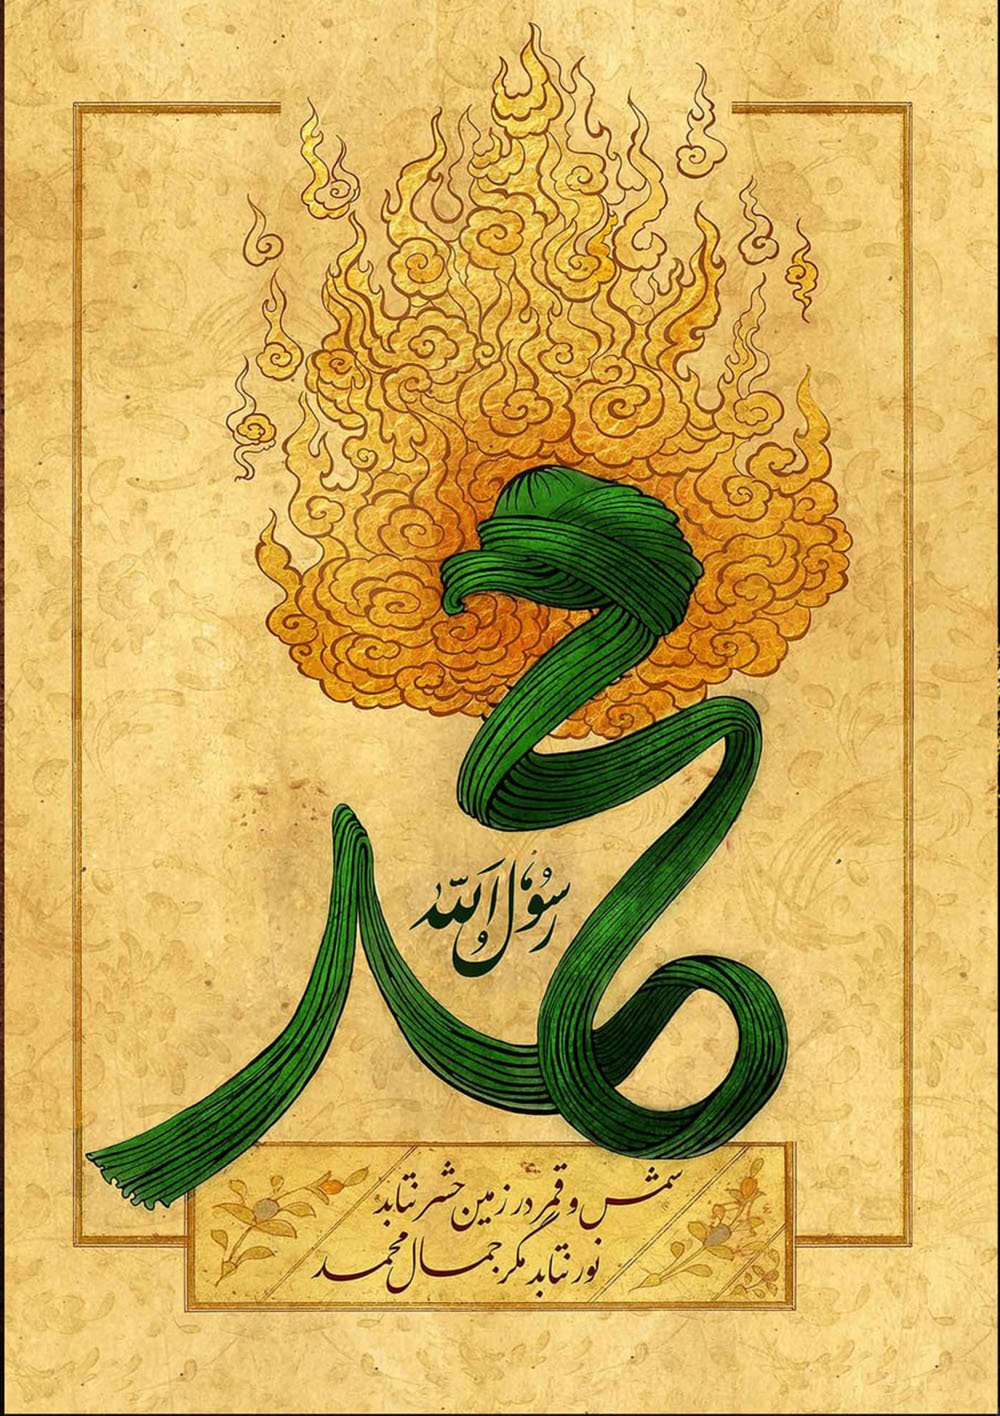 محمد
رسول الله
شمس و قمر در زمین حشر نتابد
نور نتابد مگر جمال محمد